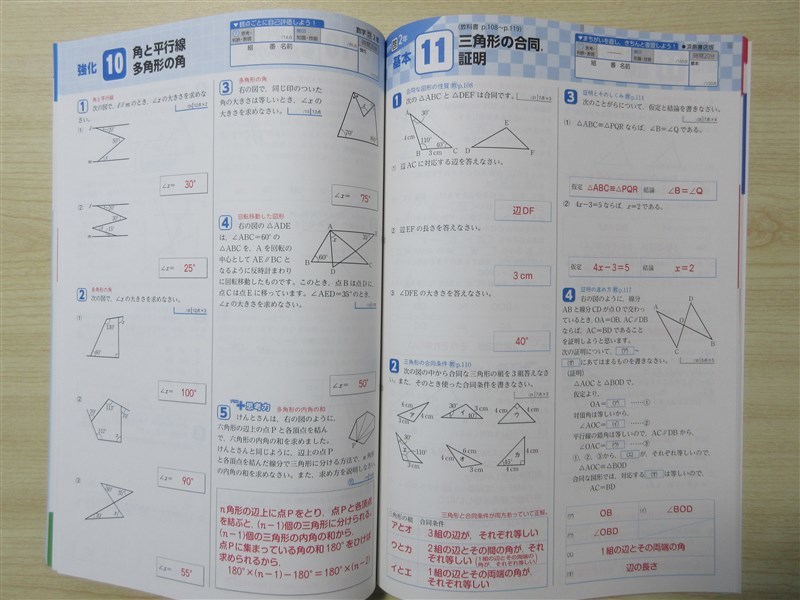 強化 10 角と平行線
多角形の角
観点ごとに自己評価しよう!
数学 2年
組 番 名前
1 角と平行線
次の図で、ℓ//mのとき、∠xの大きさを求めなさい。
①
∠x= 30°
②
∠x= 25°
2 多角形の角
次の図で、∠xの大きさを求めなさい。
①
∠x= 100°
②
∠x= 90°
③
∠x= 55°
3 多角形の角
右の図で、同じ印のついた
角の大きさは等しいとき、∠xの
大きさを求めなさい。
∠x= 75°
4 回転移動した図形
右の図の△ADE
は、∠ABC=60°の
△ABCを、Aを回転の
中心としてAE//BCと
なるように反時計まわり
に回転移動したものです。このとき、点Bは点Dに、
点Cは点Eに移っています。∠AED=35°のとき、
∠xの大きさを求めなさい。
∠x= 50°
5 +思考力 多角形の内角の和
けんとさんは、右の図のように、
六角形の辺上の点Pと各頂点を結ん
で、六角形の内角の和を求めました。
けんとさんと同じように、辺上の点P
と各頂点を結んだ線分で三角形に分ける方法で、n角形
の内角の和を求めなさい。また、求め方を説明しなさい。
n角形の辺上に点Pをとり、点Pと各頂点
を結ぶと、(n-1)個の三角形に分けられる。
(n-1)個の三角形の内角の和から、
点Pに集まっている角の和180°をひけば
求められるから、
180°×(n-1)-180°=180°×(n-2)
2年
基本 11 三角形の合同,
証明
(教科書 p.108~p.119)
まちがいを直し、きちんと復習しよう!
時間20分
組 番 名前
1 合同な図形の性質 p.108
次の△ABCと△DEFは合同です。
A 30° 4cm 110° B 3cm C
D E F
① 辺ACに対応する辺を答えなさい。
辺DF
② 辺EFの長さを答えなさい。
3cm
③ ∠DFEの大きさを答えなさい。
40°
2 三角形の合同条件 p.110
次の図の中から合同な三角形の組を3組答えなさ
い。また、そのとき使った合同条件を書きなさい。
三角形と合同条件が両方あっていて正解。
三角形の組 合同条件
アとオ 3組の辺が、それぞれ等しい
ウとカ 2組の辺とその間の角が、それ
ぞれ等しい
イとエ 1組の辺とその両端の角が、
それぞれ等しい
3 証明とそのしくみ p.114
次のことがらについて、仮定と結論を書きなさい。
① △ABC≡△PQRならば、∠B=∠Qである。
仮定 △ABC≡△PQR 結論 ∠B=∠Q
② 4x-3=5ならば、x=2である。
仮定 4x-3=5 結論 x=2
4 証明の進め方 p.117
右の図のように、線分
ABと線分CDが点Oで交わっ
ているとき、OA=OB、AC//DB
ならば、AC=BDであること
を証明しようと思います。
次の証明について、(ア)~
(オ)にあてはまるものを書きなさい。
(証明)
△AOCと△BODで、
仮定より、
OA=(ア) ……①
対頂角は等しいから、
∠AOC=(イ) ……②
平行線の錯角は等しいので、AC//DBから、
∠OAC=(ウ) ……③
①、②、③から、(エ)が、それぞれ等しいので、
△AOC≡△BOD
合同な図形では、対応する(オ)は等しいので、
AC=BD
(ア) OB (イ) ∠BOD
(ウ) ∠OBD
(エ) 1組の辺とその両端の角
(オ) 辺の長さ